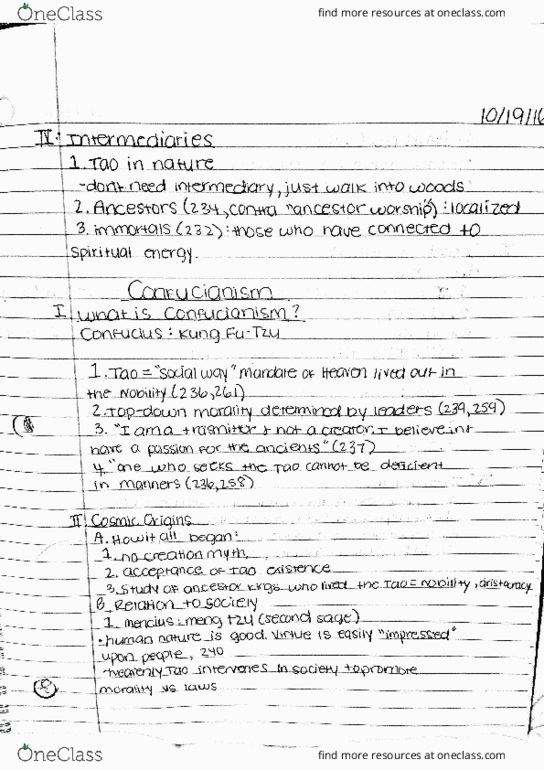 OneClass
find more resources at oneclass.com
10/19/16
IV. Intermediaries
1. Tao in nature
-don't need intermediary, just walk into woods
2. Ancestors (234, contra "ancestor worship") : localized
3. immortals (232): those who have connected to
spiritual energy.
Confucianism
I. What is Confucianism?
Confucius: Kung Fu-Tzu
1. Tao = "social way" mandate of Heaven lived out in
the nobility (236,261)
2. Top-down morality determined by leaders (239,259)
3. "I am a trasmitter & not a creator. I believe in &
have a passion for the ancients" (237)
4. "one who seeks the Tao cannot be deficient
in manners (236,258)
II. Cosmic Origins
A. How it all began:
1. no creation myth,
2. acceptance of Tao existence
3. study of ancestor kings who lived the Tao = nobility, aristocracy
B. Relation to society
1. mencius: meng tzu (second sage)
• human nature is good. Virtue is easily "impressed"
upon people, 240
-heavenly Tao intervenes in society to promote
morality vs laws
OneClass
find more resources at oneclass.com